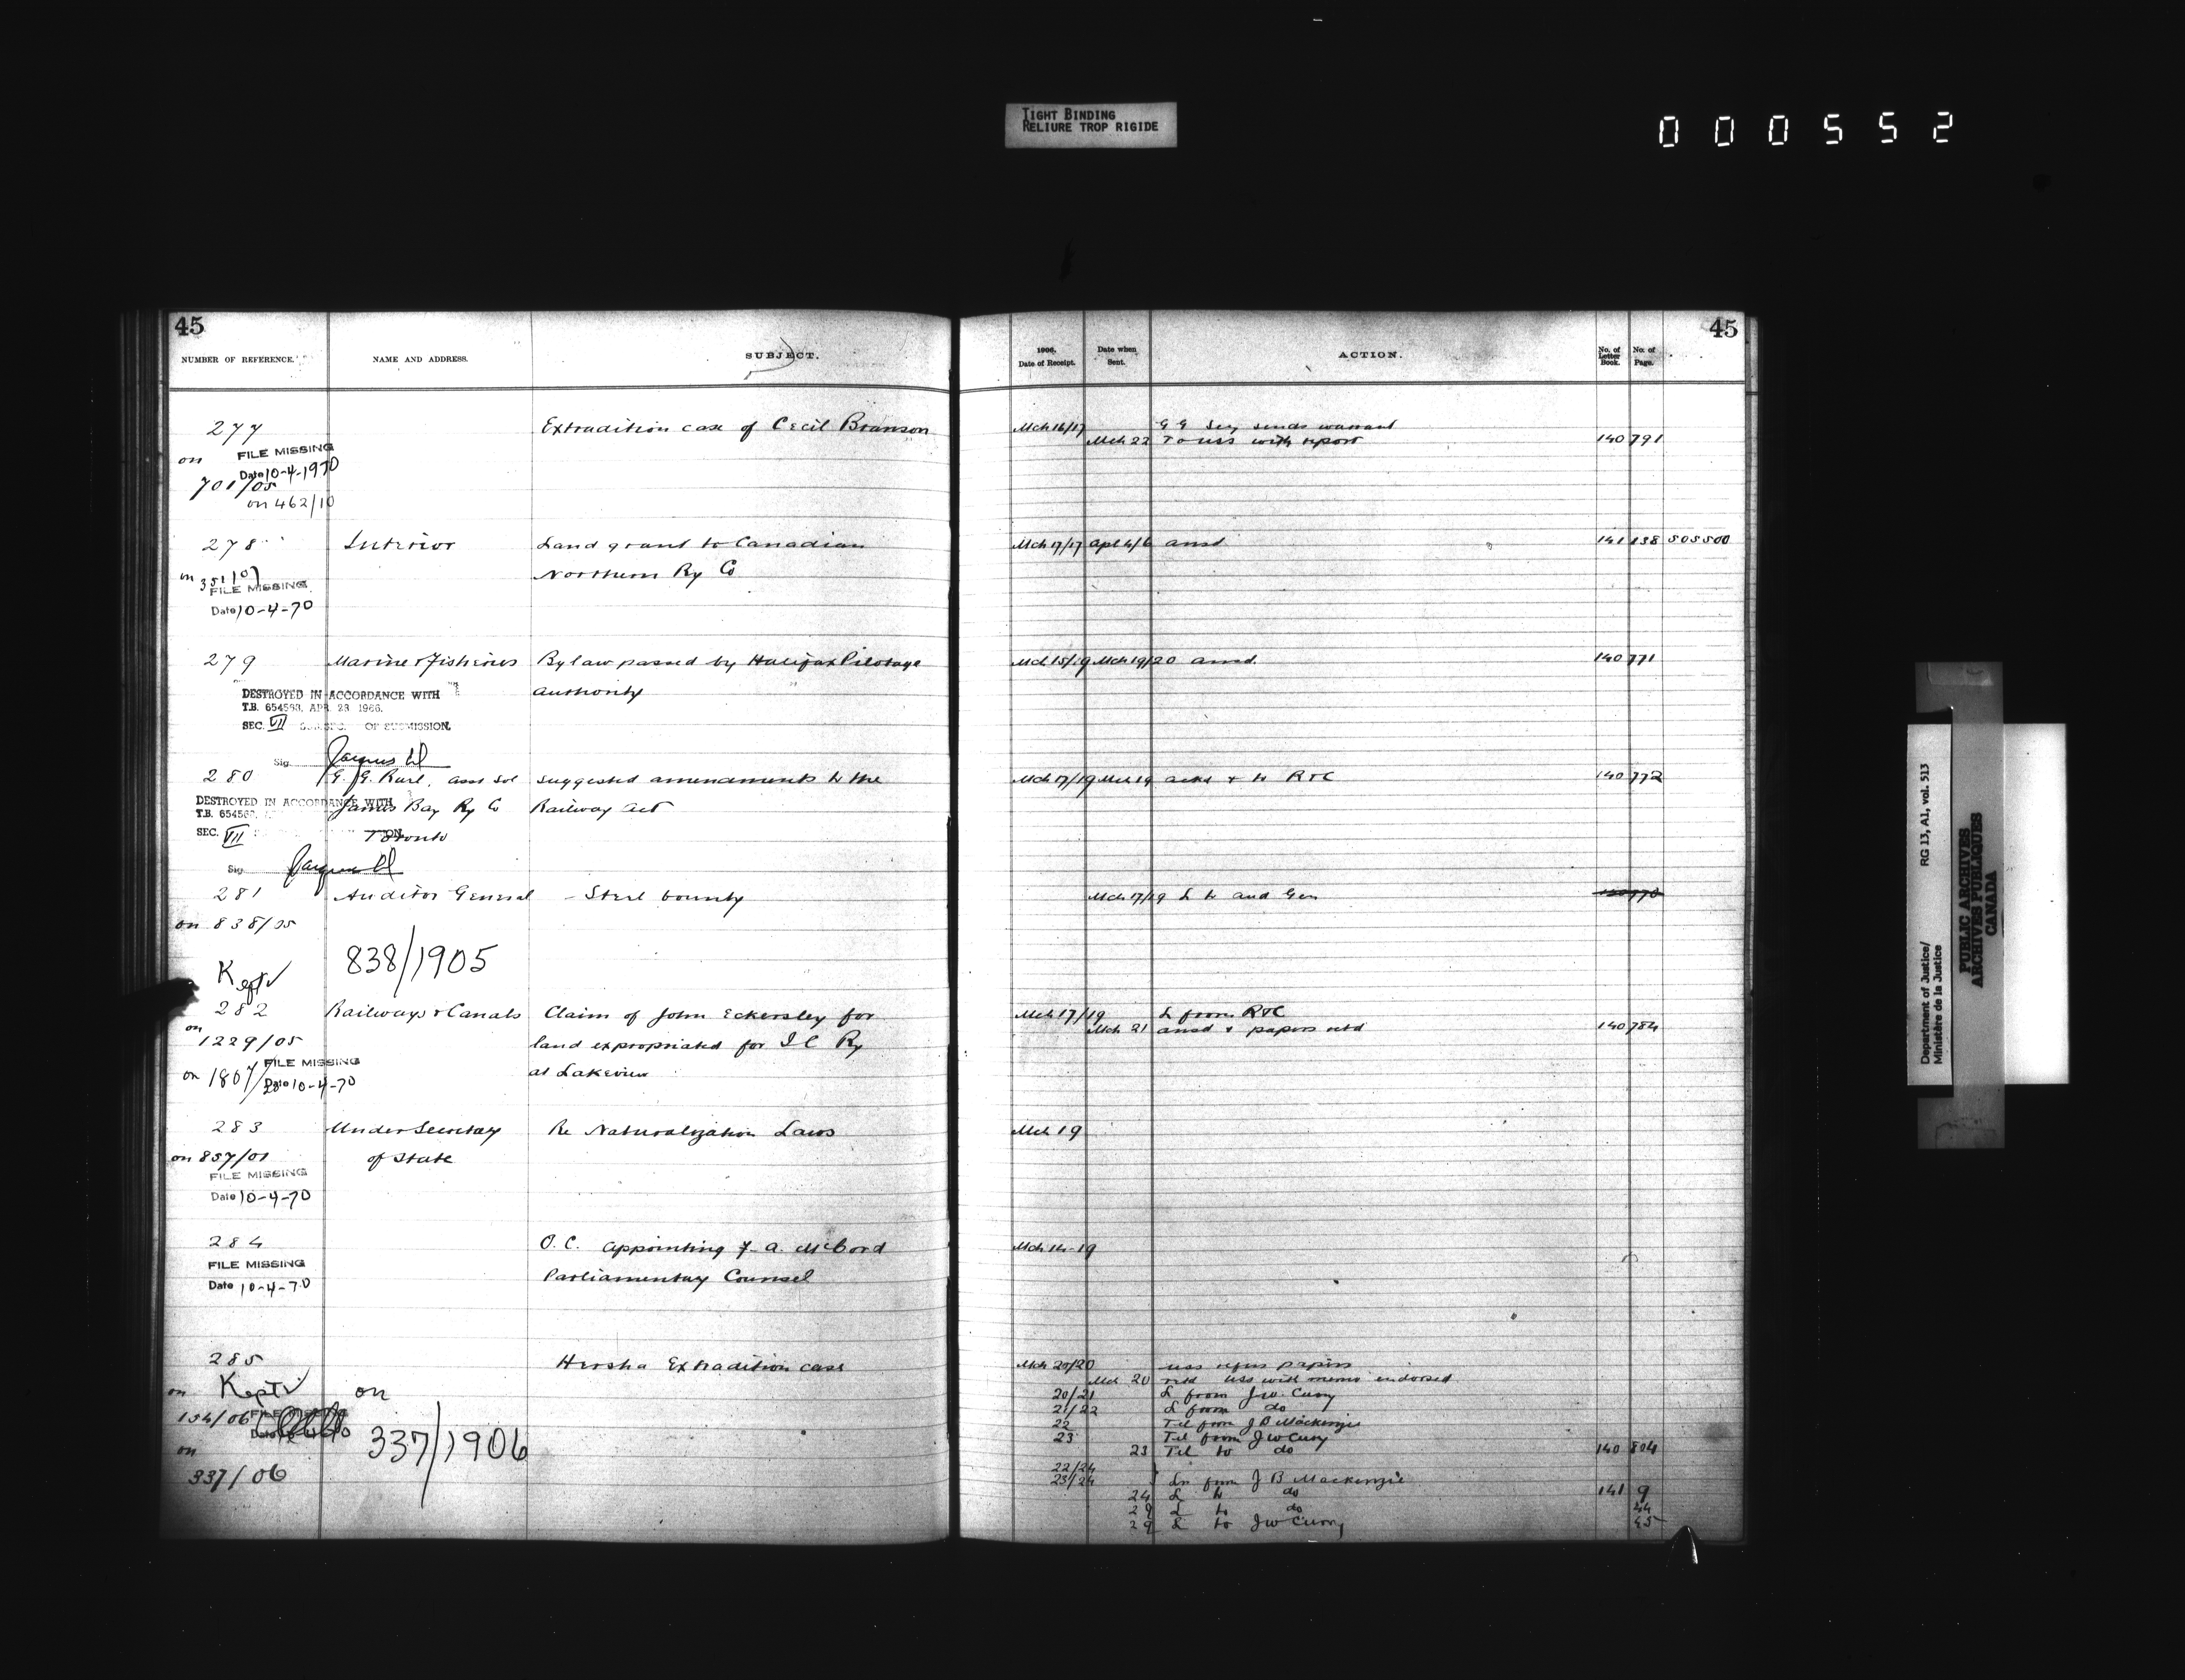 TIGHT BINDING
RELIURE TROP RIGIDE
000552
45
NUMBER OF REFERENCE.
NAME AND ADDRESS.
SUBJECT.
277
Extradition case of Cecil Branson
on
FILE MISSING
Date 10-4-1970
701/05
on 462/10
278
Interior
Land grant to Canadian
Northern Ry Co
on 351/07
FILE MISSING
Date 10-4-70
279
Marine & Fisheries
By law passed by Halifax Pilotage
authority
DESTROYED IN ACCORDANCE WITH
T.B. 654563, APR. 23 1966.
SEC. VII OF SUBMISSION.
Sig.
280
Asst Sol
Suggested amendments to the
DESTROYED IN ACCORDANCE WITH
James Bay Ry Co
Railway Act
T.B. 654563
SEC. VII
Toronto
Sig.
281
Auditor General
- Steel bounty
on 838/05
838/1905
Kept
282
Railways & Canals
Claim of John Eckersley for
on
1229/05
land expropriated for I C Ry
FILE MISSING
on 1807/
Date 10-4-70
at Lakeview
283
Under Secretary
Re Naturalization Laws
on 857/01
of State
FILE MISSING
Date 10-4-70
284
O.C. appointing F. A. McCord
FILE MISSING
Parliamentary Counsel
Date 10-4-70
285
Hersha Extradition case
on
Kept
on
154/06
FILE MISSING
337/1906
on
337/06
45
1906.
Date of Receipt.
Date when
Sent.
ACTION.
No. of
Letter
Book.
No. of
Page.
Mch 16/17 G G Secy sends warrant
Mch 22 To USS with report 140 791
Mch 17/17 Apl 4/6 ansd 141 138 505500
Mch 15/19 Mch 19/20 ansd. 140 771
Mch 17/19 Mch 19 ackd & to R&C 140 772
Mch 17/19 L to Aud Gen 140 770
Mch 17/19 L from R&C
Mch 21 ansd & papers retd 140 784
Mch 19
Mch 14-19
Mch 20/20 USS refers papers
Mch 20 retd USS with memo endorsed
20/21 L from J W. Curry
21/22 L from do
22 Tel from J B Mackenzie
23 Tel from J W Curry
23 Tel to do 140 804
22/24
23/24 Ls from J B Mackenzie
24 L to do 141 9
29 L to do 44
29 L to J W Curry 45
Department of Justice/
Ministère de la Justice
RG 13, A1, vol. 513
PUBLIC ARCHIVES
ARCHIVES PUBLIQUES
CANADA